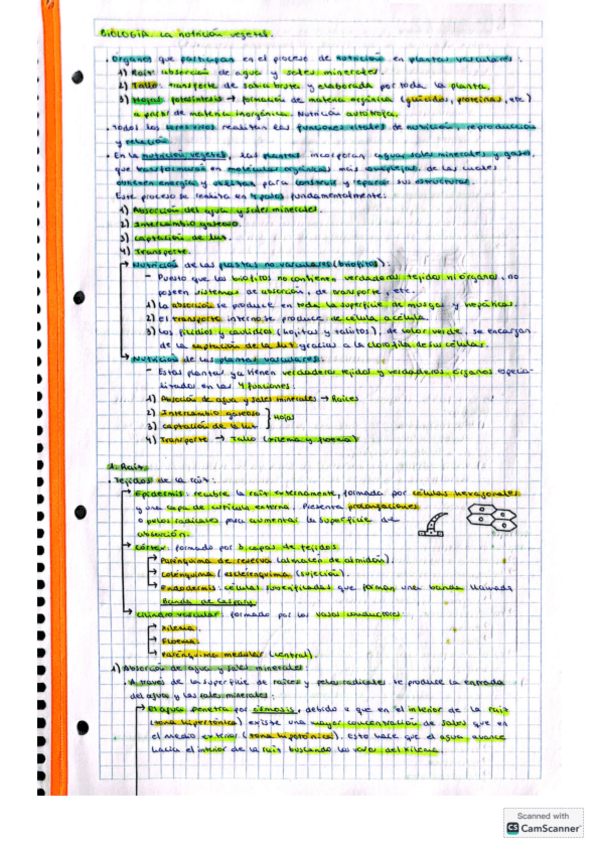 BIOLOGÍA. La nutrición vegetal.
· Órganos que participan en el proceso de nutrición en plantas vasculares:
1) Raíz: absorción de agua y sales minerales.
2) Tallo: transporte de savia bruta y elaborada por toda la planta.
3) Hojas: fotosíntesis → formación de materia orgánica (glúcidos, proteínas, etc)
a partir de materia inorgánica. Nutrición autótrofa.
· Todos los seres vivos realizan las funciones vitales de nutrición, reproducción
y relación.
· En la nutrición vegetal, las plantas incorporan agua, sales minerales y gases,
que transforman en moléculas orgánicas más complejas, de las cuales
obtienen energía y utilizan para construir y reparar sus estructuras.
Este proceso se realiza en 4 pasos fundamentalmente:
1) Absorción del agua y sales minerales.
2) Intercambio gaseoso.
3) Captación de luz.
4) Transporte.
→ Nutrición de las plantas no vasculares (briofitas):
- Puesto que las briofitas no contienen verdaderos tejidos ni órganos, no
poseen sistemas de absorción, de transporte, etc.
1) La absorción se produce en toda la superficie de musgos y hepáticas.
2) El transporte interno se produce de célula a célula.
3) Los filidios y caulidios (hojitas y tallitos), de color verde, se encargan
de la captación de la luz gracias a la clorofila de sus células.
→ Nutrición de las plantas vasculares:
- Estas plantas ya tienen verdaderos tejidos y verdaderos órganos especia-
lizados en las 4 funciones.
1) Absorción de agua y sales minerales → Raíces
2) Intercambio gaseoso
3) Captación de la luz } Hojas
4) Transporte → Tallo (xilema y floema)
1. Raíz.
· Tejidos de la raíz:
→ Epidermis: recubre la raíz externamente, formada por células hexagonales
y una capa de cutícula externa. Presenta prolongaciones
o pelos radicales para aumentar la superficie de
absorción.
→ Córtex: formado por 3 capas de tejidos
→ Parénquima de reserva (almacén de almidón).
→ Colénquima / esclerénquima (sujeción).
→ Endodermis: células suberificadas que forman una banda llamada
Banda de Caspary.
→ Cilindro vascular: formado por los vasos conductores
→ Xilema.
→ Floema.
→ Parénquima medular (central).
1) Absorción de agua y sales minerales:
· A través de la superficie de raíces y pelos radicales se produce la entrada
del agua y las sales minerales:
→ El agua penetra por ósmosis, debido a que en el interior de la raíz
(zona hipertónica) existe una mayor concentración de sales que en
el medio exterior (zona hipotónica). Esto hace que el agua avance
hacia el interior de la raíz buscando los vasos del xilema.
Scanned with
CS CamScanner